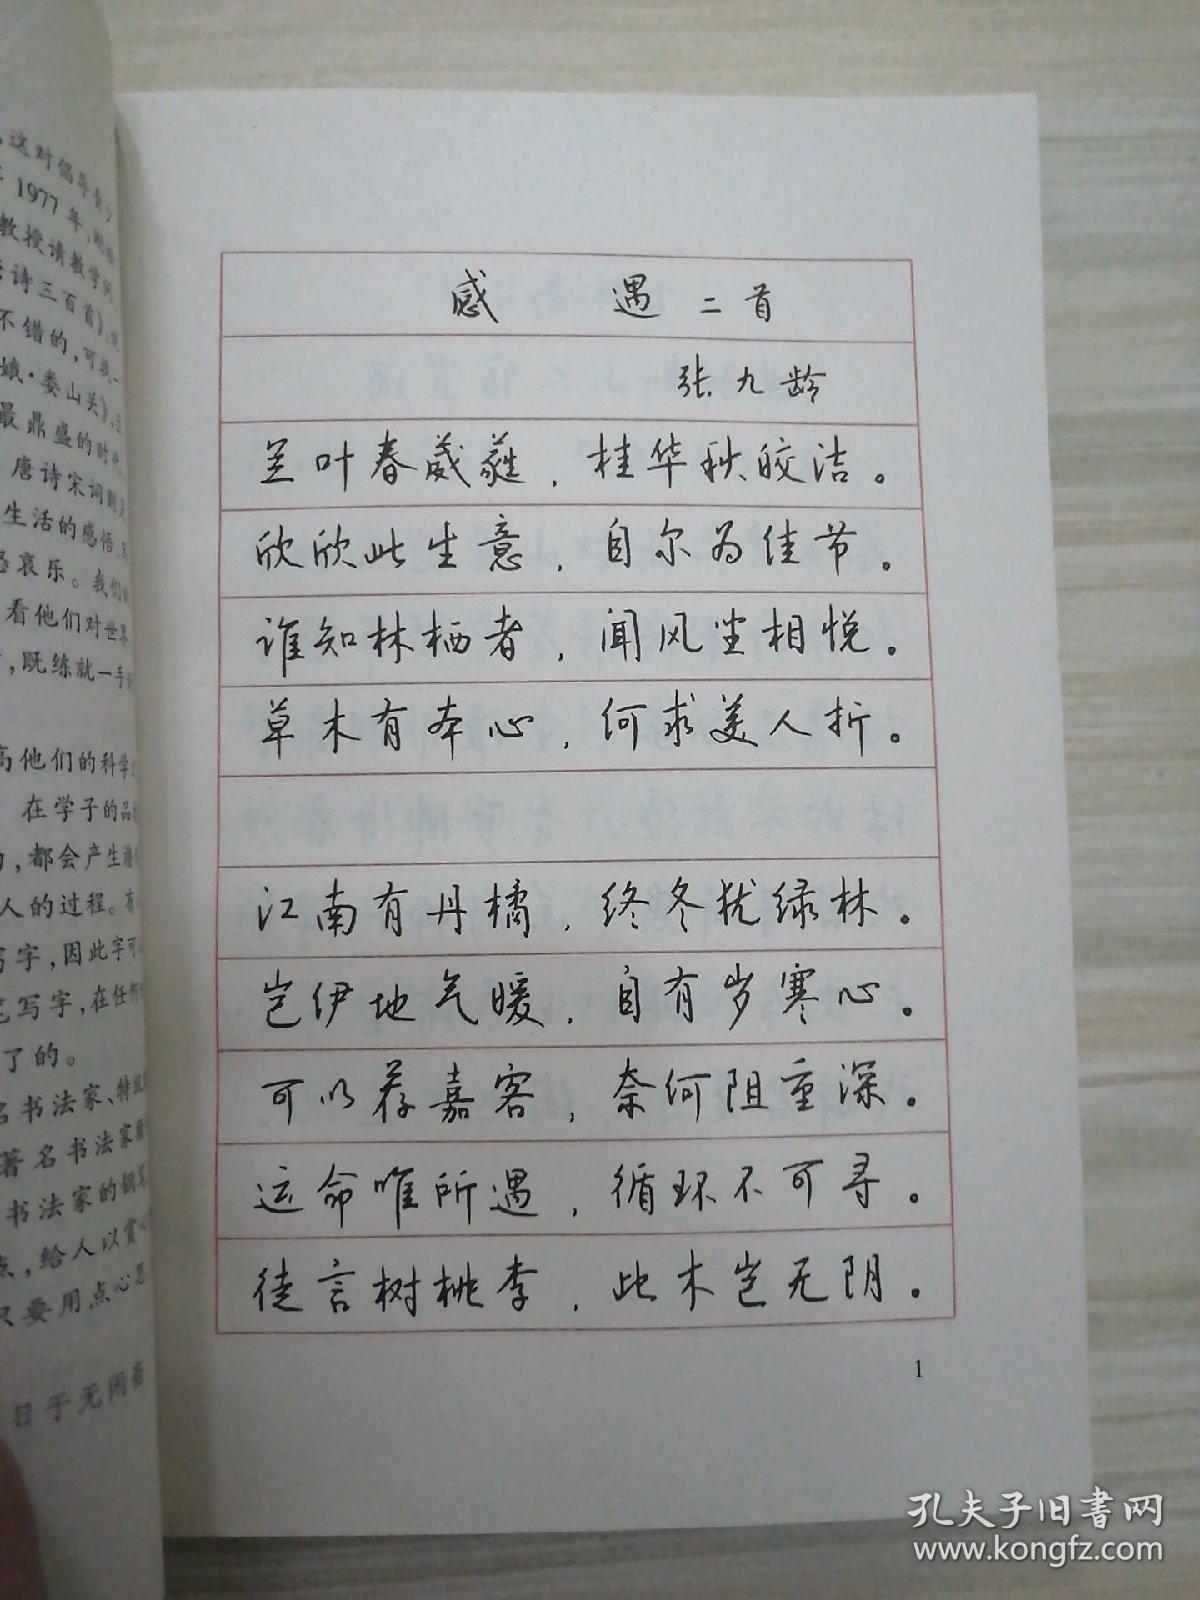 ，这对倡导青少
1977年，
教授请教学问
诗三百首》，
不错的，可找一
娥·娄山关》，
最鼎盛的时代
唐诗宋词则
生活的感悟，写
怒哀乐。我们
看他们对世界
，既练就一手
高他们的科学
在学子的品
，都会产生潜
人的过程。有
写字，因此字可
写字，在任何
了的。
名书法家、特级
著名书法家
书法家的钢笔
点，给人以赏心
只要用点心思
日于无闲斋
感 遇 二首
张九龄
兰叶春葳蕤，桂华秋皎洁。
欣欣此生意，自尔为佳节。
谁知林栖者，闻风坐相悦。
草木有本心，何求美人折。
江南有丹橘，终冬犹绿林。
岂伊地气暖，自有岁寒心。
可以荐嘉客，奈何阻重深。
运命唯所遇，循环不可寻。
徒言树桃李，此木岂无阴。
1
孔夫子旧书网
www.kongfz.com